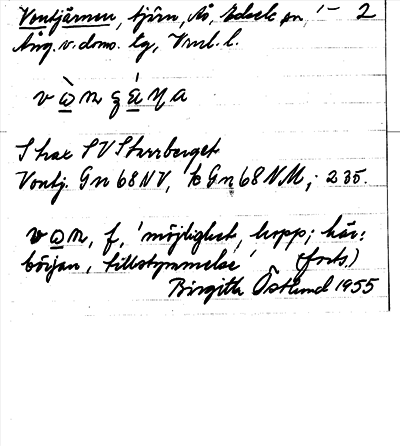 Vontjärnen, tjärn, Ås, Edsele sn, 2
Ång. v. doms. tg, Vnrl. l.
S har SV Storrberget
Vontj. Gn 68 NV, k Gn 68 NM, 235.
von, f, 'möjlighet, hopp; här:
början, tillstymmelse' (forts)
Birgitta Östlund 1955